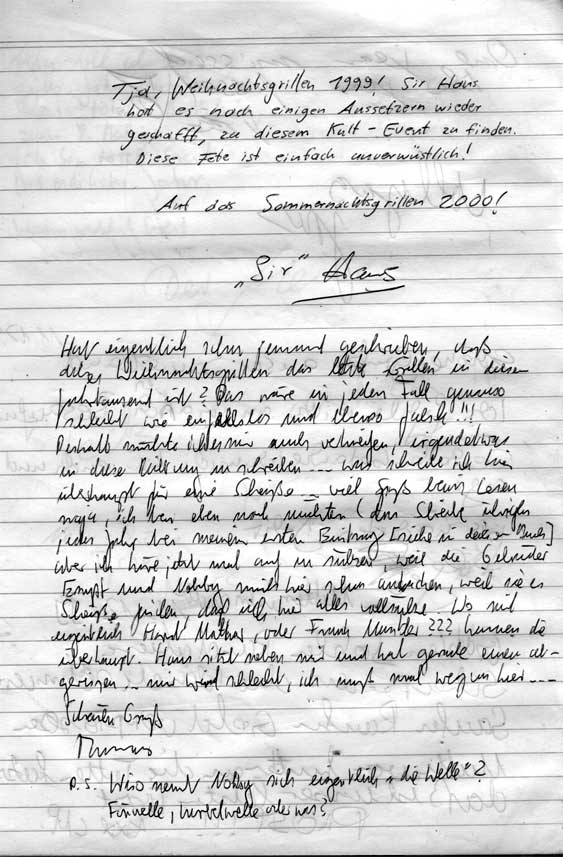 Tja, Weihnachtsgrillen 1999! Sir Hans
hat es nach einigen Aussetzern wieder
geschafft, zu diesem Kult-Event zu finden.
Diese Fete ist einfach unverwüstlich!
Auf das Sommernachtsgrillen 2000!
„Sir" Hans
Hat eigentlich schon jemand geschrieben, daß
dieses Weihnachtsgrillen das letzte Grillen in diesem
Jahrtausend ist? Das wäre in jedem Fall genauso
schlecht wie einfallslos und ebenso falsch!!!
Deshalb möchte ich es mir auch verkneifen irgendetwas
in diese Richtung zu schreiben ... was schreibe ich hier
überhaupt für eine Scheiße - viel Spaß beim Lesen
naja, ich bin eben noch nüchtern (das Storck übrigens
jedes Jahr bei meinem ersten Eintrag [siehe in diesem Buch]
aber ich höre jetzt mal auf zu sülzen, weil die Gebrüder
und Nobby mich hier schon anlachen, weil sie es
Scheiße finden, daß ich hier alles vollsülze. Wo sind
eigentlich Horst Mathar, oder Frank Münster??? kommen die
überhaupt. Hans sitzt neben mir und hat gerade einen ab-
gerissen .. mir wird schlecht, ich muß mal weg von hier ---
Schönen Gruß
Thomas
P.S. Wieso nennt Nobby sich eigentlich „die Welle"?
Fönwelle, Kurbelwelle oder was?